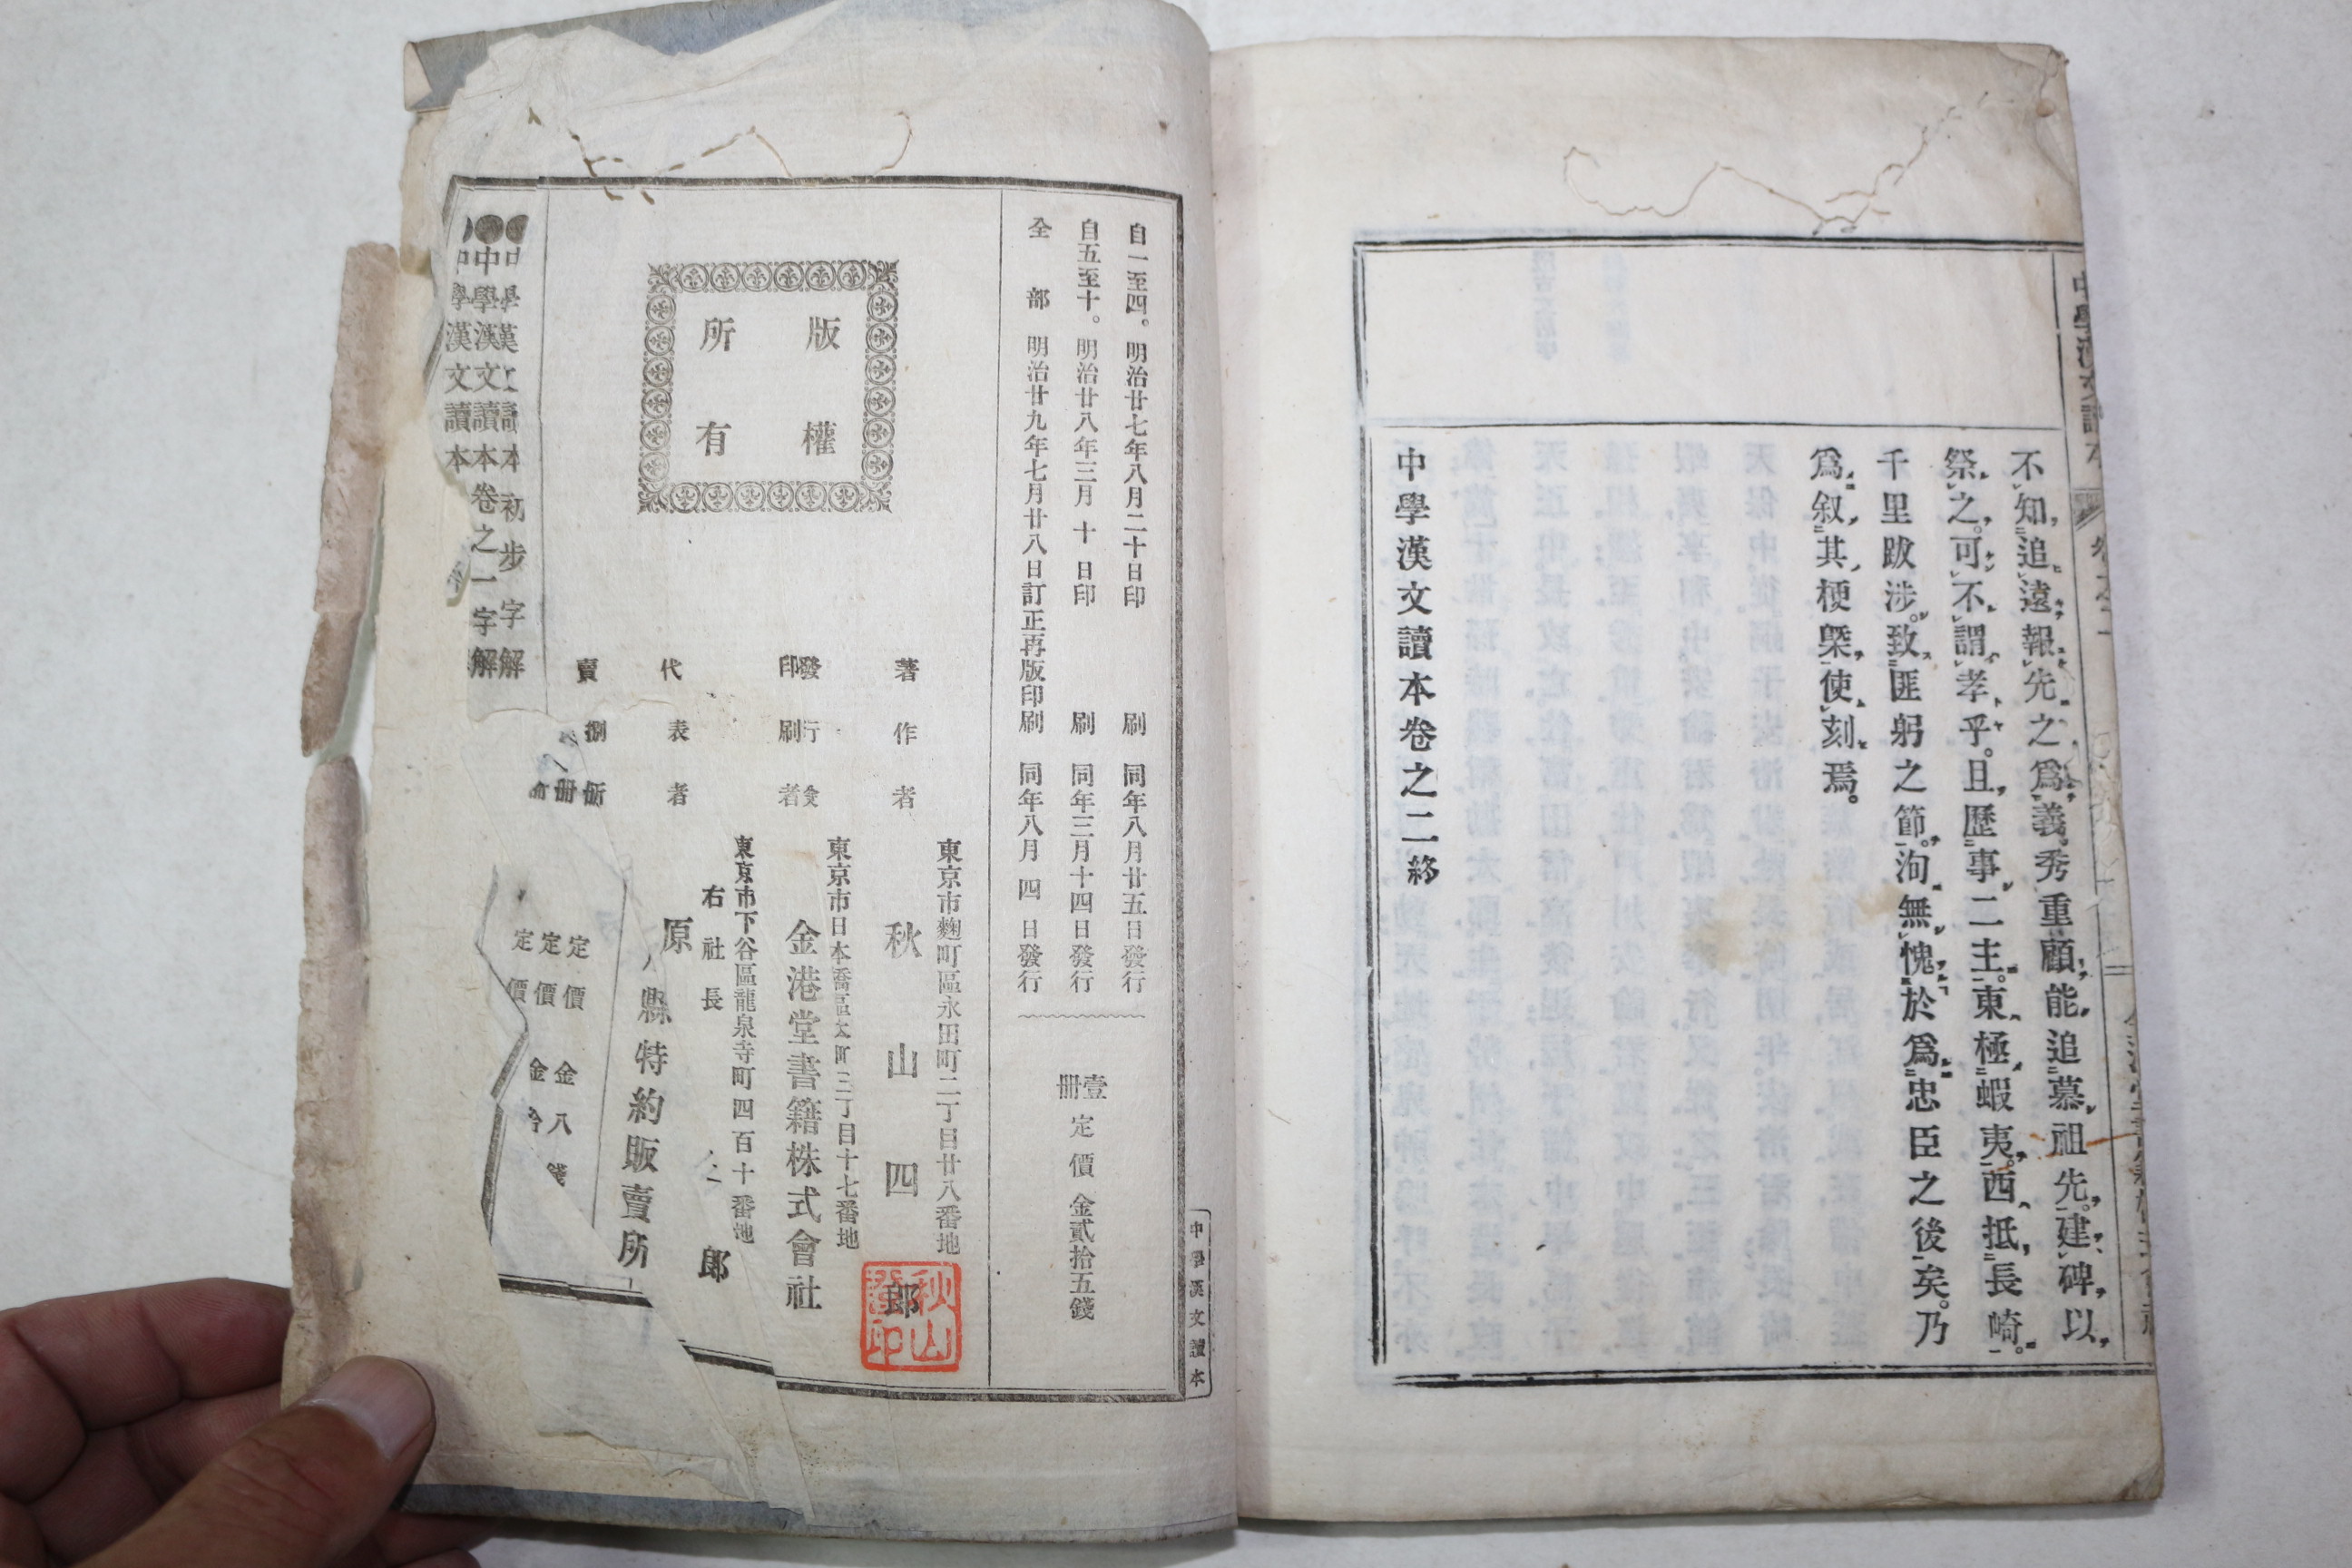 不知追遠報先之爲義秀重顧能追慕祖先建碑以
祭之。可不謂孝乎。且歷事二主。東極蝦夷。西抵長崎。
千里跋涉。致匪躬之節。洵無愧於爲忠臣之後矣。乃
爲叙其梗槩使刻焉。
中學漢文讀本卷之二終
中學漢文讀本
自一至四。明治廿七年八月二十日印刷 同年八月廿五日發行
自五至十。明治廿八年三月十日印刷 同年三月十四日發行
全部 明治廿九年七月廿八日訂正再版印刷 同年八月四日發行
壹冊定價金貳拾五錢
版權
所有
著作者
東京市麴町區永田町二丁目廿八番地
秋山四郎
秋山
印
發行
印刷者
東京市日本橋區本町三丁目十七番地
金港堂書籍株式會社
代表者
東京市下谷區龍泉寺町四百十番地
右社長
原
郎
賣捌所
縣特約販賣所
中學漢文讀本初步字解
定價金八錢
●中學漢文讀本卷之一字解
定價金
中學漢文讀本
定價